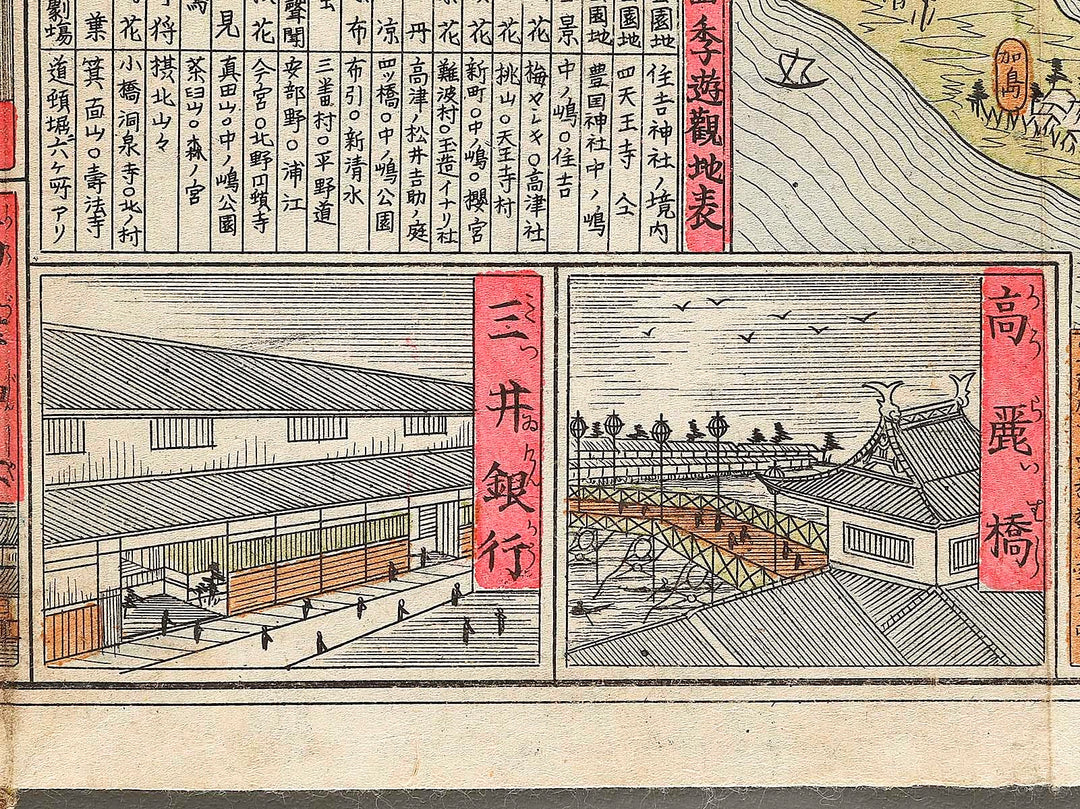 季遊觀地表
園地 住吉神社ノ境内
園地 四天王寺 仝
園地 豊国神社中ノ嶋
景 中ノ嶋○住吉
花 梅ヤシキ○高津社
花 桃山○天王寺村
花 新町○中ノ嶋○櫻宮
花 難波村○玉造イナリ社
丹 高津ノ松井吉助ノ庭
凉 四ッ橋○中ノ嶋公園
布 布引○新清水
三番村○平野道
聲聞 安部野○浦江
花 今宮○北野円頓寺
見 真田山○中ノ嶋公園
茶臼山○森ノ宮
摂北山々
花 小橋洞泉寺○北ノ村
葉 箕面山○壽法寺
劇場 道頓堀六ヶ所アリ
加島
高麗橋
かうらいはし
三井銀行
みつゐぎんかう